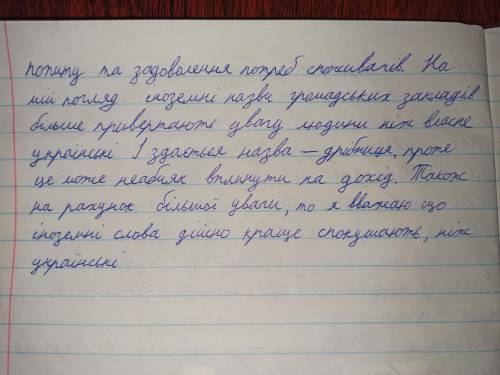 попиту та задоволення потреб споживачів. На
мій погляд іноземні назви громадських закладів
більше привертають увагу людини ніж власне
українські. І здається назва — дрібниця, проте
це може неабияк вплинути на дохід. Також
на рахунок більшої уваги, то я вважаю що
іноземні слова дійсно краще спокушають, ніж
українські.